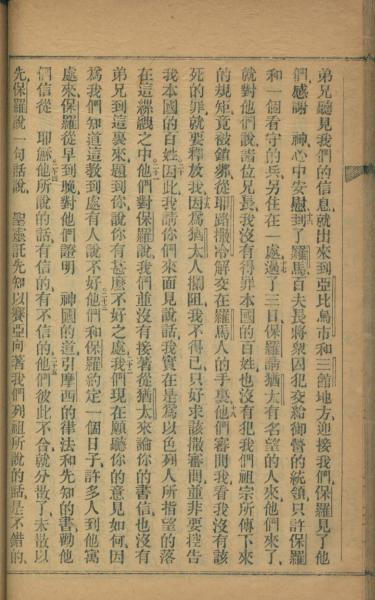 弟兄聽見我們的信息就出來到亞比烏市和三館地方迎接我們保羅見了他
們感謝　神心中安慰十六到了羅馬百夫長將衆囚犯交給御營的統領只許保羅
和一個看守的兵另住在一處十七過了三日保羅請猶太有名望的人來他們來了
就對他們說諸位兄長我沒有得罪本國的百姓也沒有犯我們祖宗所傳下來
的規矩竟被鎖綁從耶路撒冷解交在羅馬人的手裏十八他們審問我看我沒有該
死的罪就要釋放我十九因爲猶太人攔阻我不得已只好求該撒審問並非要控告
我本國的百姓二十因此我請你們來面見說話我實在是爲以色列人所指望的落
在這縲絏之中二十一他們對保羅說我們並沒有接著從猶太來論你的書信也沒有
弟兄到這裏來題到你說你有甚麼不好之處二十二我們現在願聽你的意見如何因
爲我們知道這教到處有人說不好二十三他們和保羅約定一個日子許多人到他寓
處來保羅從早到晚對他們證明　神國的道引摩西的律法和先知的書勸他
們信從　耶穌二十四他所說的話有信的有不信的二十五他們彼此不合就分散了未散以
先保羅說一句話說　聖靈託先知以賽亞向著我們列祖所說的話是不錯的